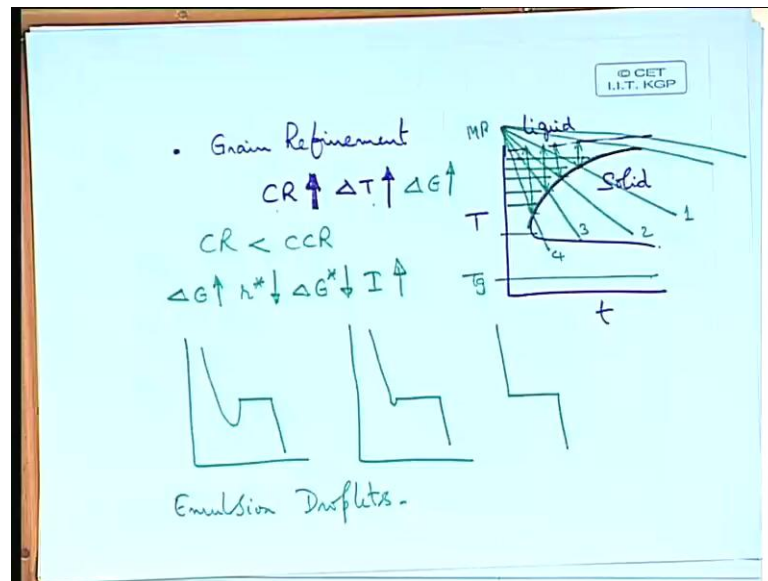 © CET
I.I.T. KGP
• Grain Refinement
CR ↑ ΔT ↑ ΔG ↑
CR < CCR
ΔG ↑ r* ↓ ΔG* ↓ I ↑
MP liquid
Solid
T
1
2
3
4
Tg
t
Emulsion Droplets.